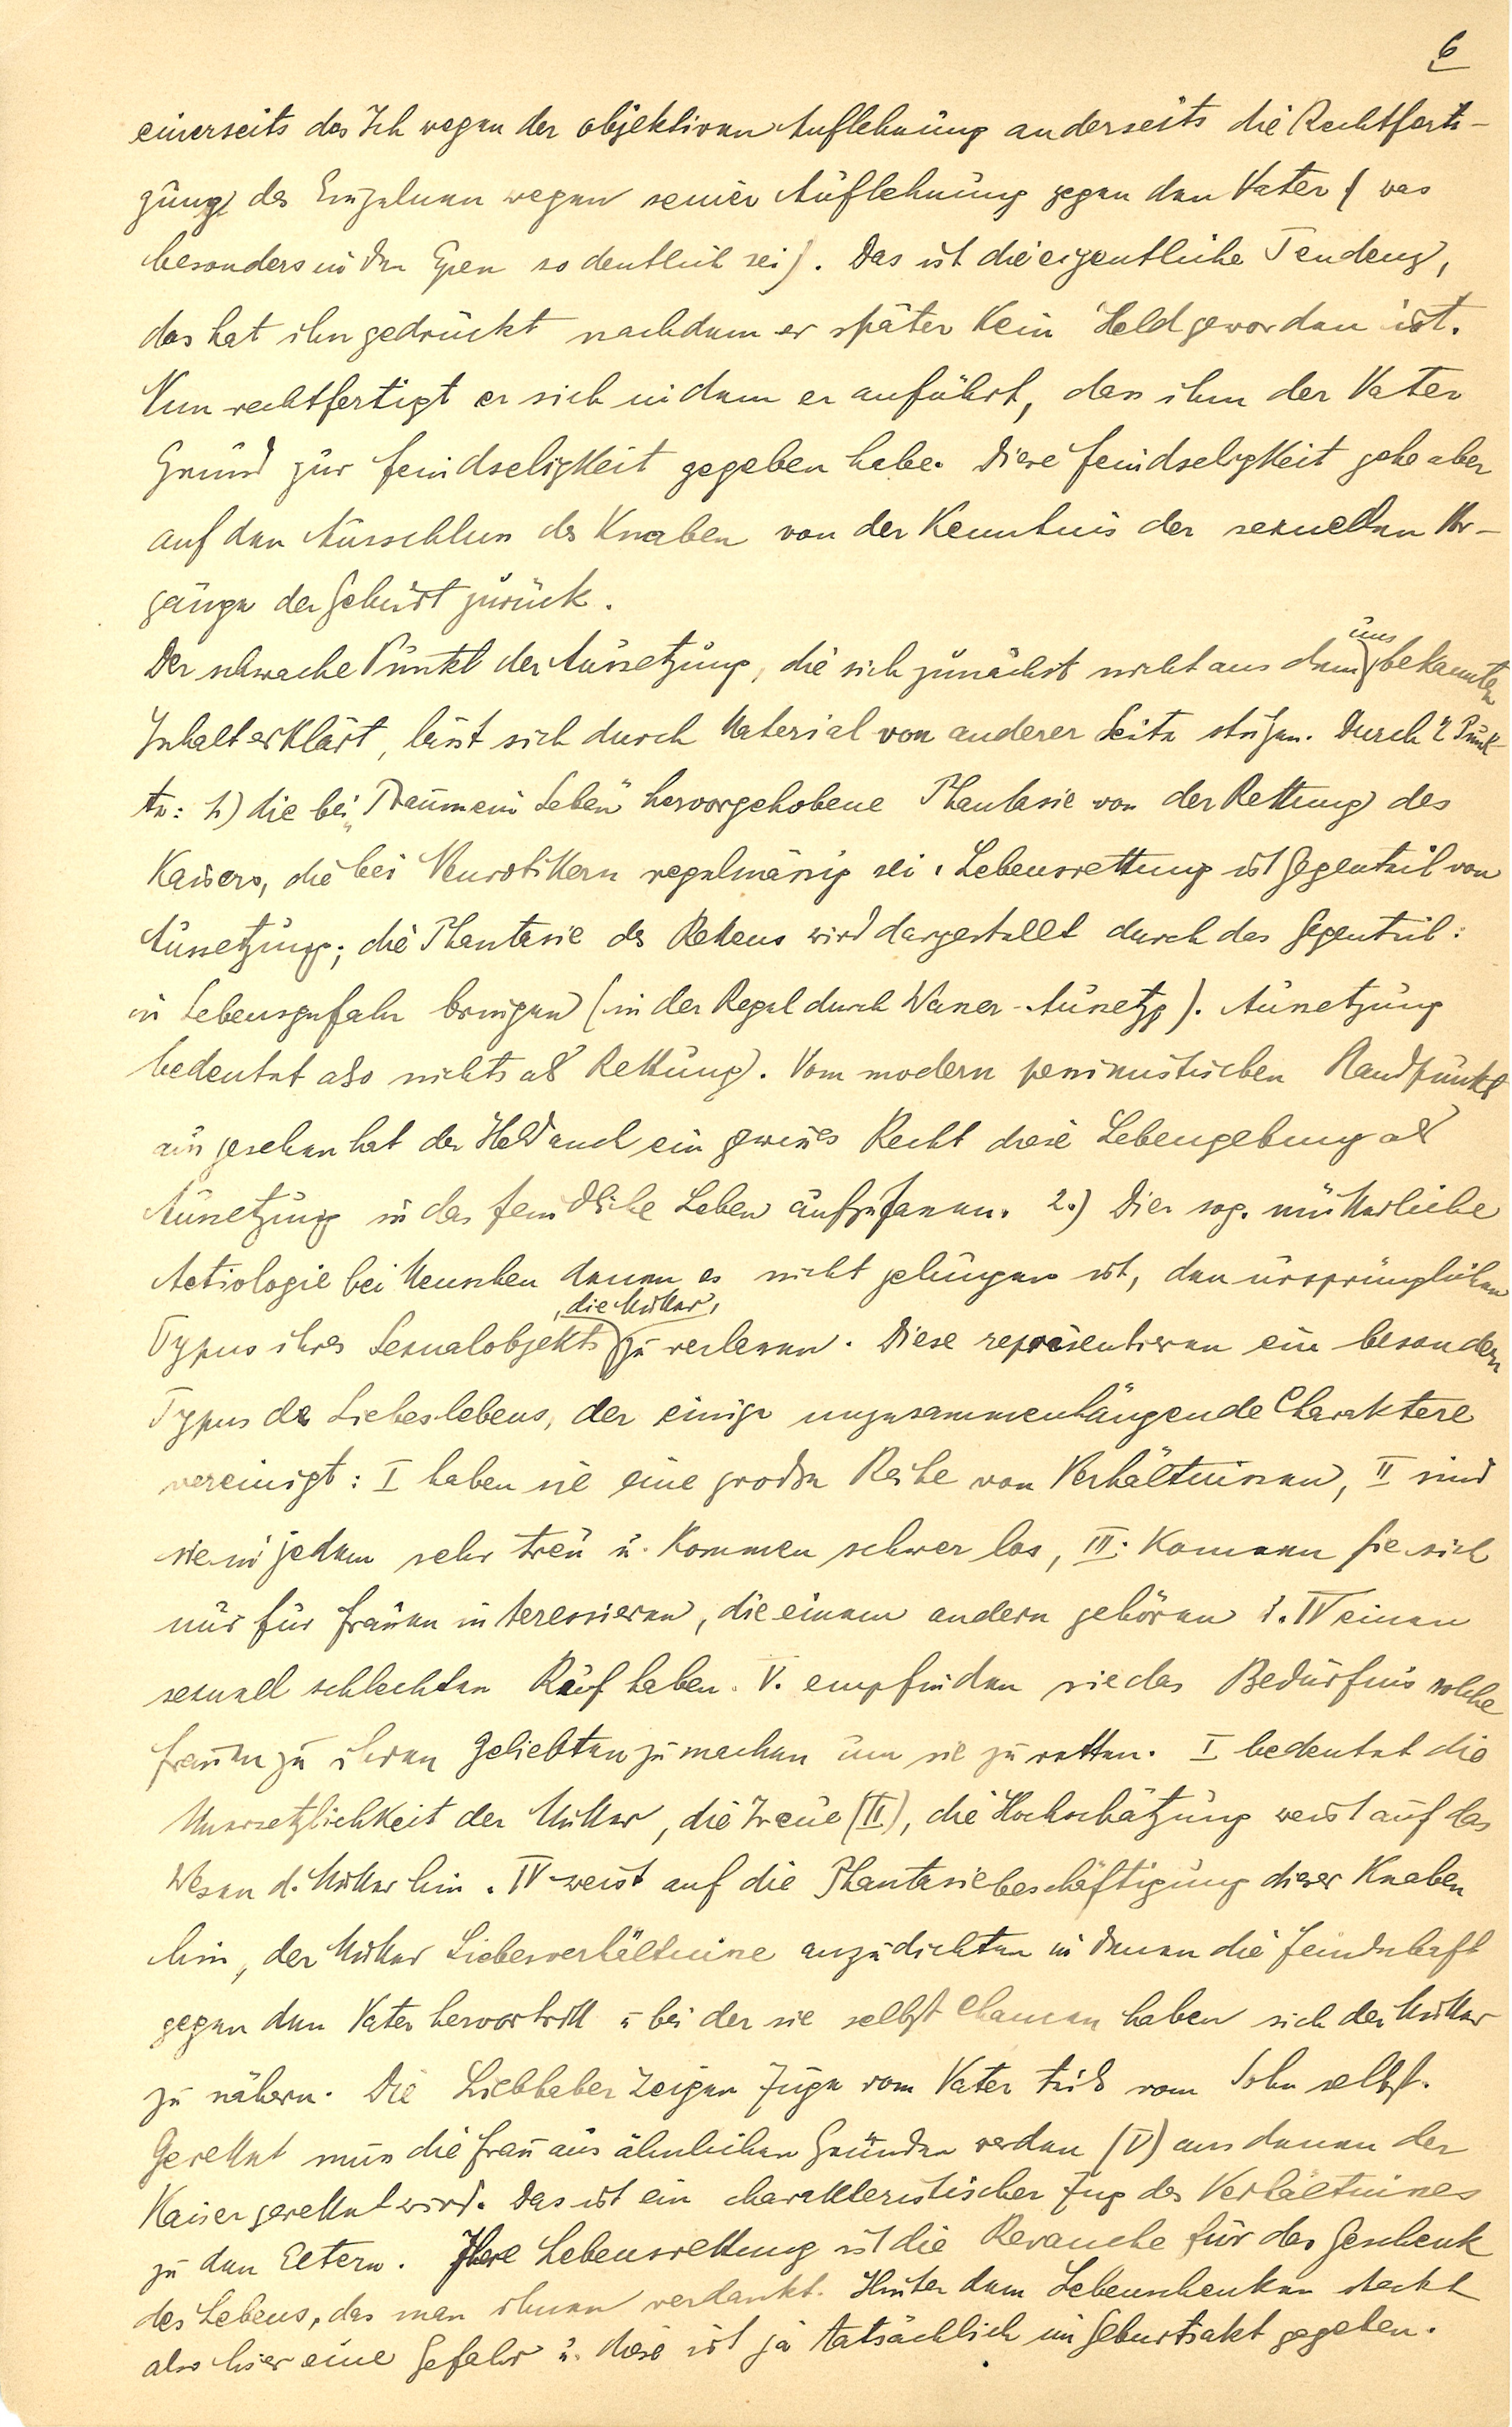 6
einerseits des Ich wegen der objektiven Auflehnung anderseits die Rechtferti-
gung des Einzelnen wegen seiner Auflehnung gegen den Vater (was
besonders in den Epen so deutlich sei). Das ist die eigentliche Tendenz,
das hat ihn gedrückt nachdem er später kein Held geworden ist.
Nun rechtfertigt er sich indem er anführt, dass ihm der Vater
Grund zur Feindseligkeit gegeben habe. Diese Feindseligkeit gehe aber
auf den Ausschluss des Knaben von der Kenntnis der sexuellen Vor-
gänge der Geburt zurück.
Der schwache Punkt der Aussetzung, die sich zunächst nicht aus dem uns bekannten
Inhalt erklärt, lässt sich durch Material von anderer Seite stützen. Durch 2 Punk-
te: 1.) die bei „Traum ein Leben" hervorgehobene Phantasie von der Rettung des
Kaisers, die bei Neurotikern regelmässig sei. Lebensrettung ist Gegenteil von
Aussetzung; die Phantasie des Rettens wird dargestellt durch das Gegenteil:
in Lebensgefahr bringen (in der Regel durch Wasser-Aussetzg). Aussetzung
bedeutet also nichts als Rettung. Vom modern pessimistischen Standpunkt
aus gesehen hat der Held auch ein gewisses Recht diese Lebengebung als
Aussetzung in das feindliche Leben aufzufassen. 2.) Dies sog. mütterliche
Aetiologie bei Menschen denen es nicht gelungen ist, den ursprünglichen
Typus ihres Sexualobjekts, die Mutter, zu verlassen. Diese repräsentieren ein besondern
Typus des Liebeslebens, der einige unzusammenhängende Charaktere
vereinigt: I haben sie eine grosse Reihe von Verhältnissen, II sind
sie in jedem sehr treu u. kommen schwer los, III. können sie sich
nur für Frauen interessieren, die einem andern gehören u. IV einen
sexuell schlechten Ruf haben. V. empfinden sie das Bedürfnis solche
Frauen zu ihren Geliebten zu machen um sie zu retten. I bedeutet die
Unersetzlichkeit der Mutter, die Treue (II), die Hochschätzung weist auf das
Wesen d. Mutter hin. IV weist auf die Phantasiebeschäftigung dieser Knaben
hin, der Mutter Liebesverhältnisse anzudichten in denen die Feindschaft
gegen den Vater hervortritt u bei der sie selbst Chancen haben sich der Mutter
zu nähern. Die Liebhaber zeigen Züge vom Vater teils vom Sohn selbst.
Gerettet muss die Frau aus ähnlichen Gründen werden (V) aus denen der
Kaiser gerettet wird. Das ist ein charakteristischer Zug des Verhältnisses
zu den Eltern. Ihre Lebensrettung ist die Revanche für das Geschenk
des Lebens, das man ihnen verdankt. Hinter dem Lebenschenken steckt
also hier eine Gefahr u. diese ist ja tatsächlich im Geburtsakt gegeben.